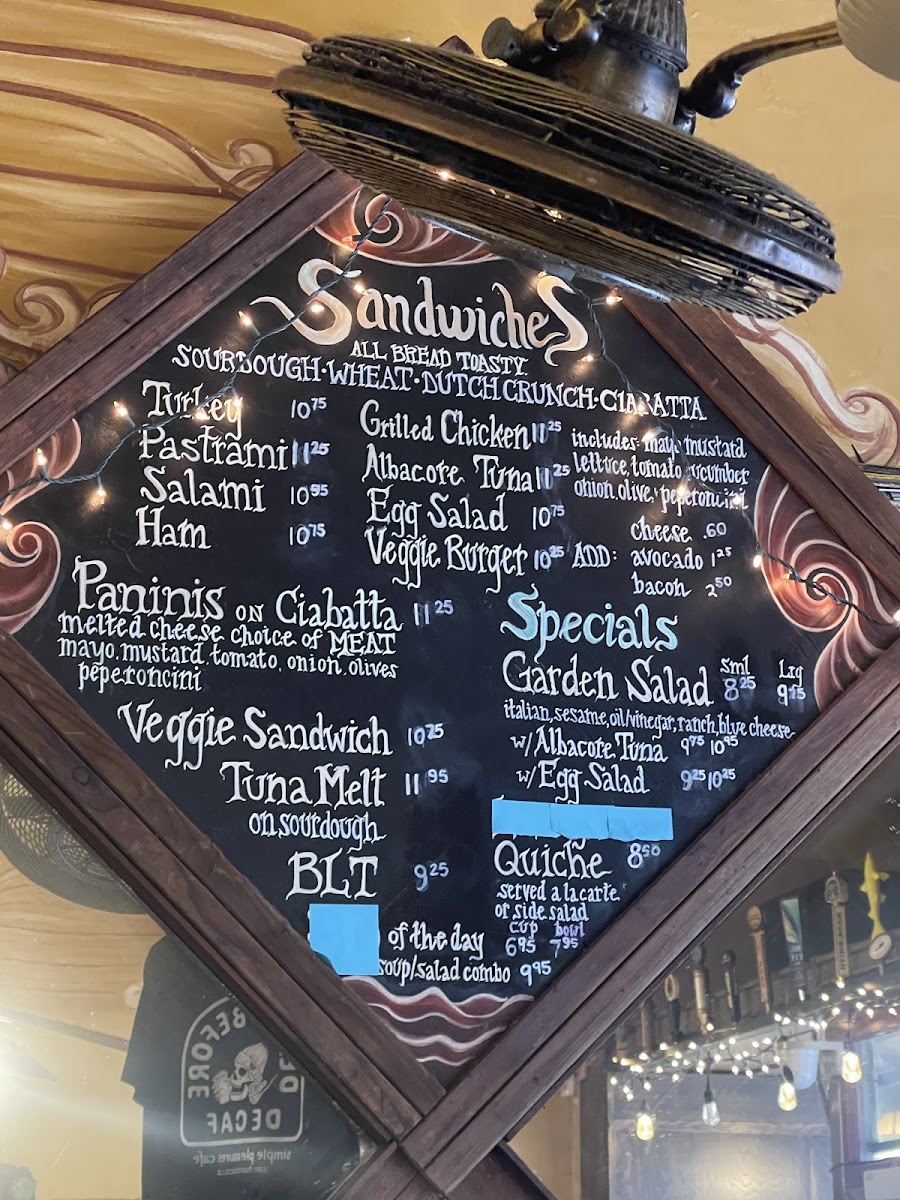 Sandwiches
ALL BREAD TOASTY.
SOURDOUGH·WHEAT·DUTCH CRUNCH·CIABATTA
Turkey 10 75
Pastrami 11 25
Salami 10 95
Ham 10 75
Grilled Chicken 11 25
Albacore Tuna 11 25
Egg Salad 10 75
Veggie Burger 10 25
includes: mayo mustard
lettuce, tomato, cucumber
onion, olive, peperoncini
ADD: cheese .60
avocado 1 25
bacon 2 50
Paninis ON Ciabatta 11 25
melted cheese choice of MEAT
mayo, mustard, tomato, onion, olives
peperoncini
Veggie Sandwich 10 25
Tuna Melt 11 95
on sourdough
BLT 9 25
of the day cup 6 95 bowl 7 95
soup/salad combo 9 95
Specials
Garden Salad Sml 8 25 Lrg 9 15
italian, sesame, oil/vinegar, ranch, blue cheese
w/Albacore Tuna 9 75 10 95
w/Egg Salad 9 25 10 25
Quiche 8 50
served a la carte
or side salad
BEFORE
DECAF
simple pleasures cafe
san francisco, ca